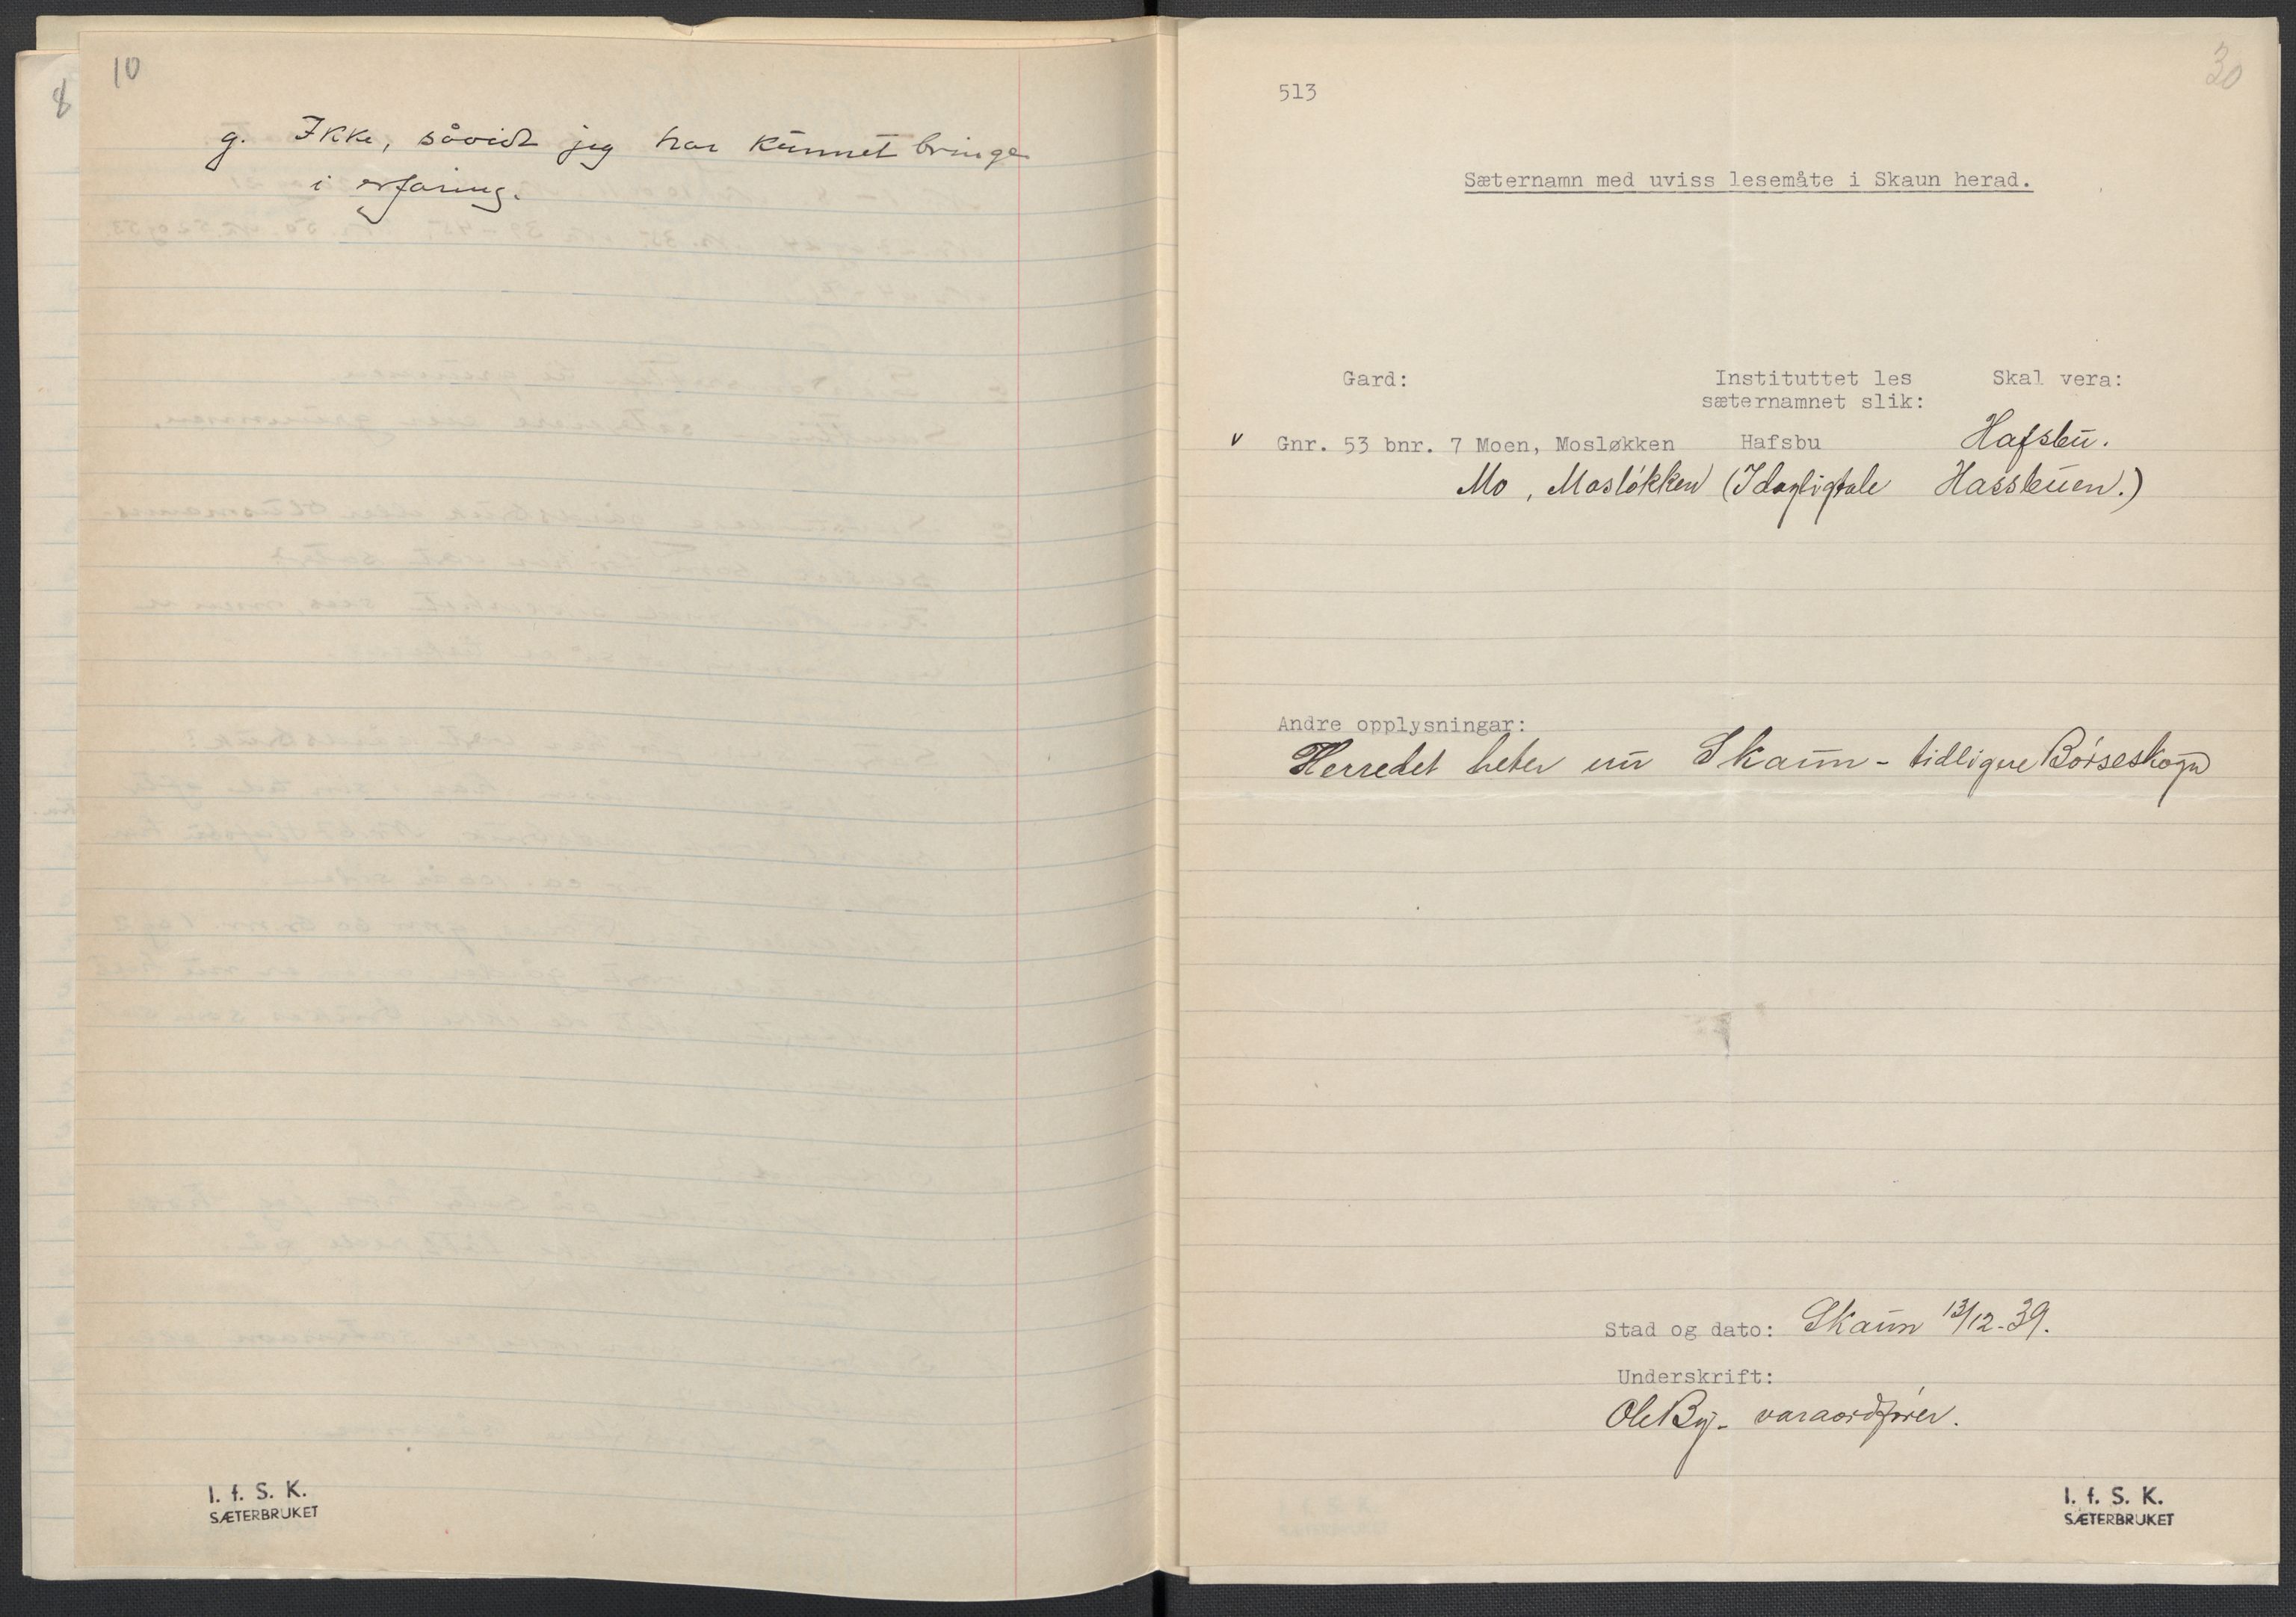 10
8
g. Ikke, såvidt jeg har kunnet bringe
i erfaring.
I. f. S. K.
SÆTERBRUKET
30
513
Sæternamn med uviss lesemåte i Skaun herad.
Gard: Instituttet les Skal vera:
sæternamnet slik:
v Gnr. 53 bnr. 7 Moen, Mosløkken Hafsbu Hafsbu.
Mo, Mosløkken (I dagligtale Hassbuen.)
Andre opplysningar:
Herredet heter nu Skaun - tidligere Børseskogn
Stad og dato: Skaun 13/12-39.
Underskrift:
Ole By - varaordfører.
I. f. S. K.
SÆTERBRUKET